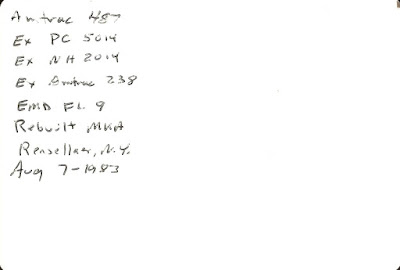 Amtrac 487
Ex PC 5014
Ex NH 2014
Ex Amtrac 238
EMD FL 9
Rebuilt MKA
Rensellaer, N.Y.
Aug 7-1983